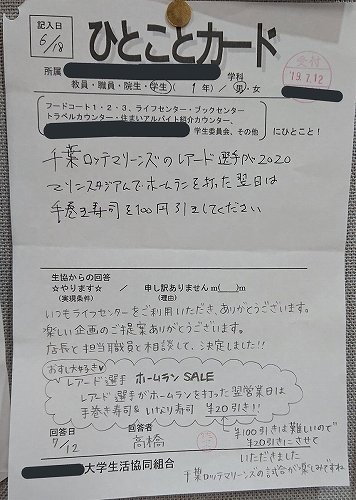 記入日
6/18
ひとことカード
受付
'19.7.12
所属
学科
教員・職員・院生・学生( 1年)/男・女
フードコート1・2・3、ライフセンター・ブックセンター
トラベルカウンター・住まいアルバイト紹介カウンター、
学生委員会、その他
にひとこと!
千葉ロッテマリーンズのレアード選手が2020
マリンスタジアムでホームランを打った翌日は
手巻き寿司を100円引きしてください
生協からの回答
☆やります☆ / 申し訳ありませんm(__)m
(実現条件) (理由)
いつもライフセンターをご利用いただき、ありがとうございます。
楽しい企画のご提案ありがとうございます。
店長と担当職員と相談して、決定しました!!
おすし大好き♡
レアード選手 ホームランSALE
レアード選手がホームランを打った翌営業日は
手巻き寿司&いなり寿司 ¥20引き!!
回答日
7/12
回答者
高橋
¥100引きは難しいので
¥20引きにさせて
いただきました
大学生活協同組合
千葉ロッテマリーンズの試合が楽しみですね